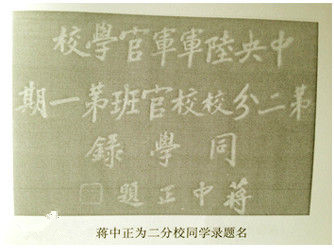 中央陸軍軍官學校
苐二分校校官班苐一期
同學錄
蔣中正題
蒋中正为二分校同学录题名